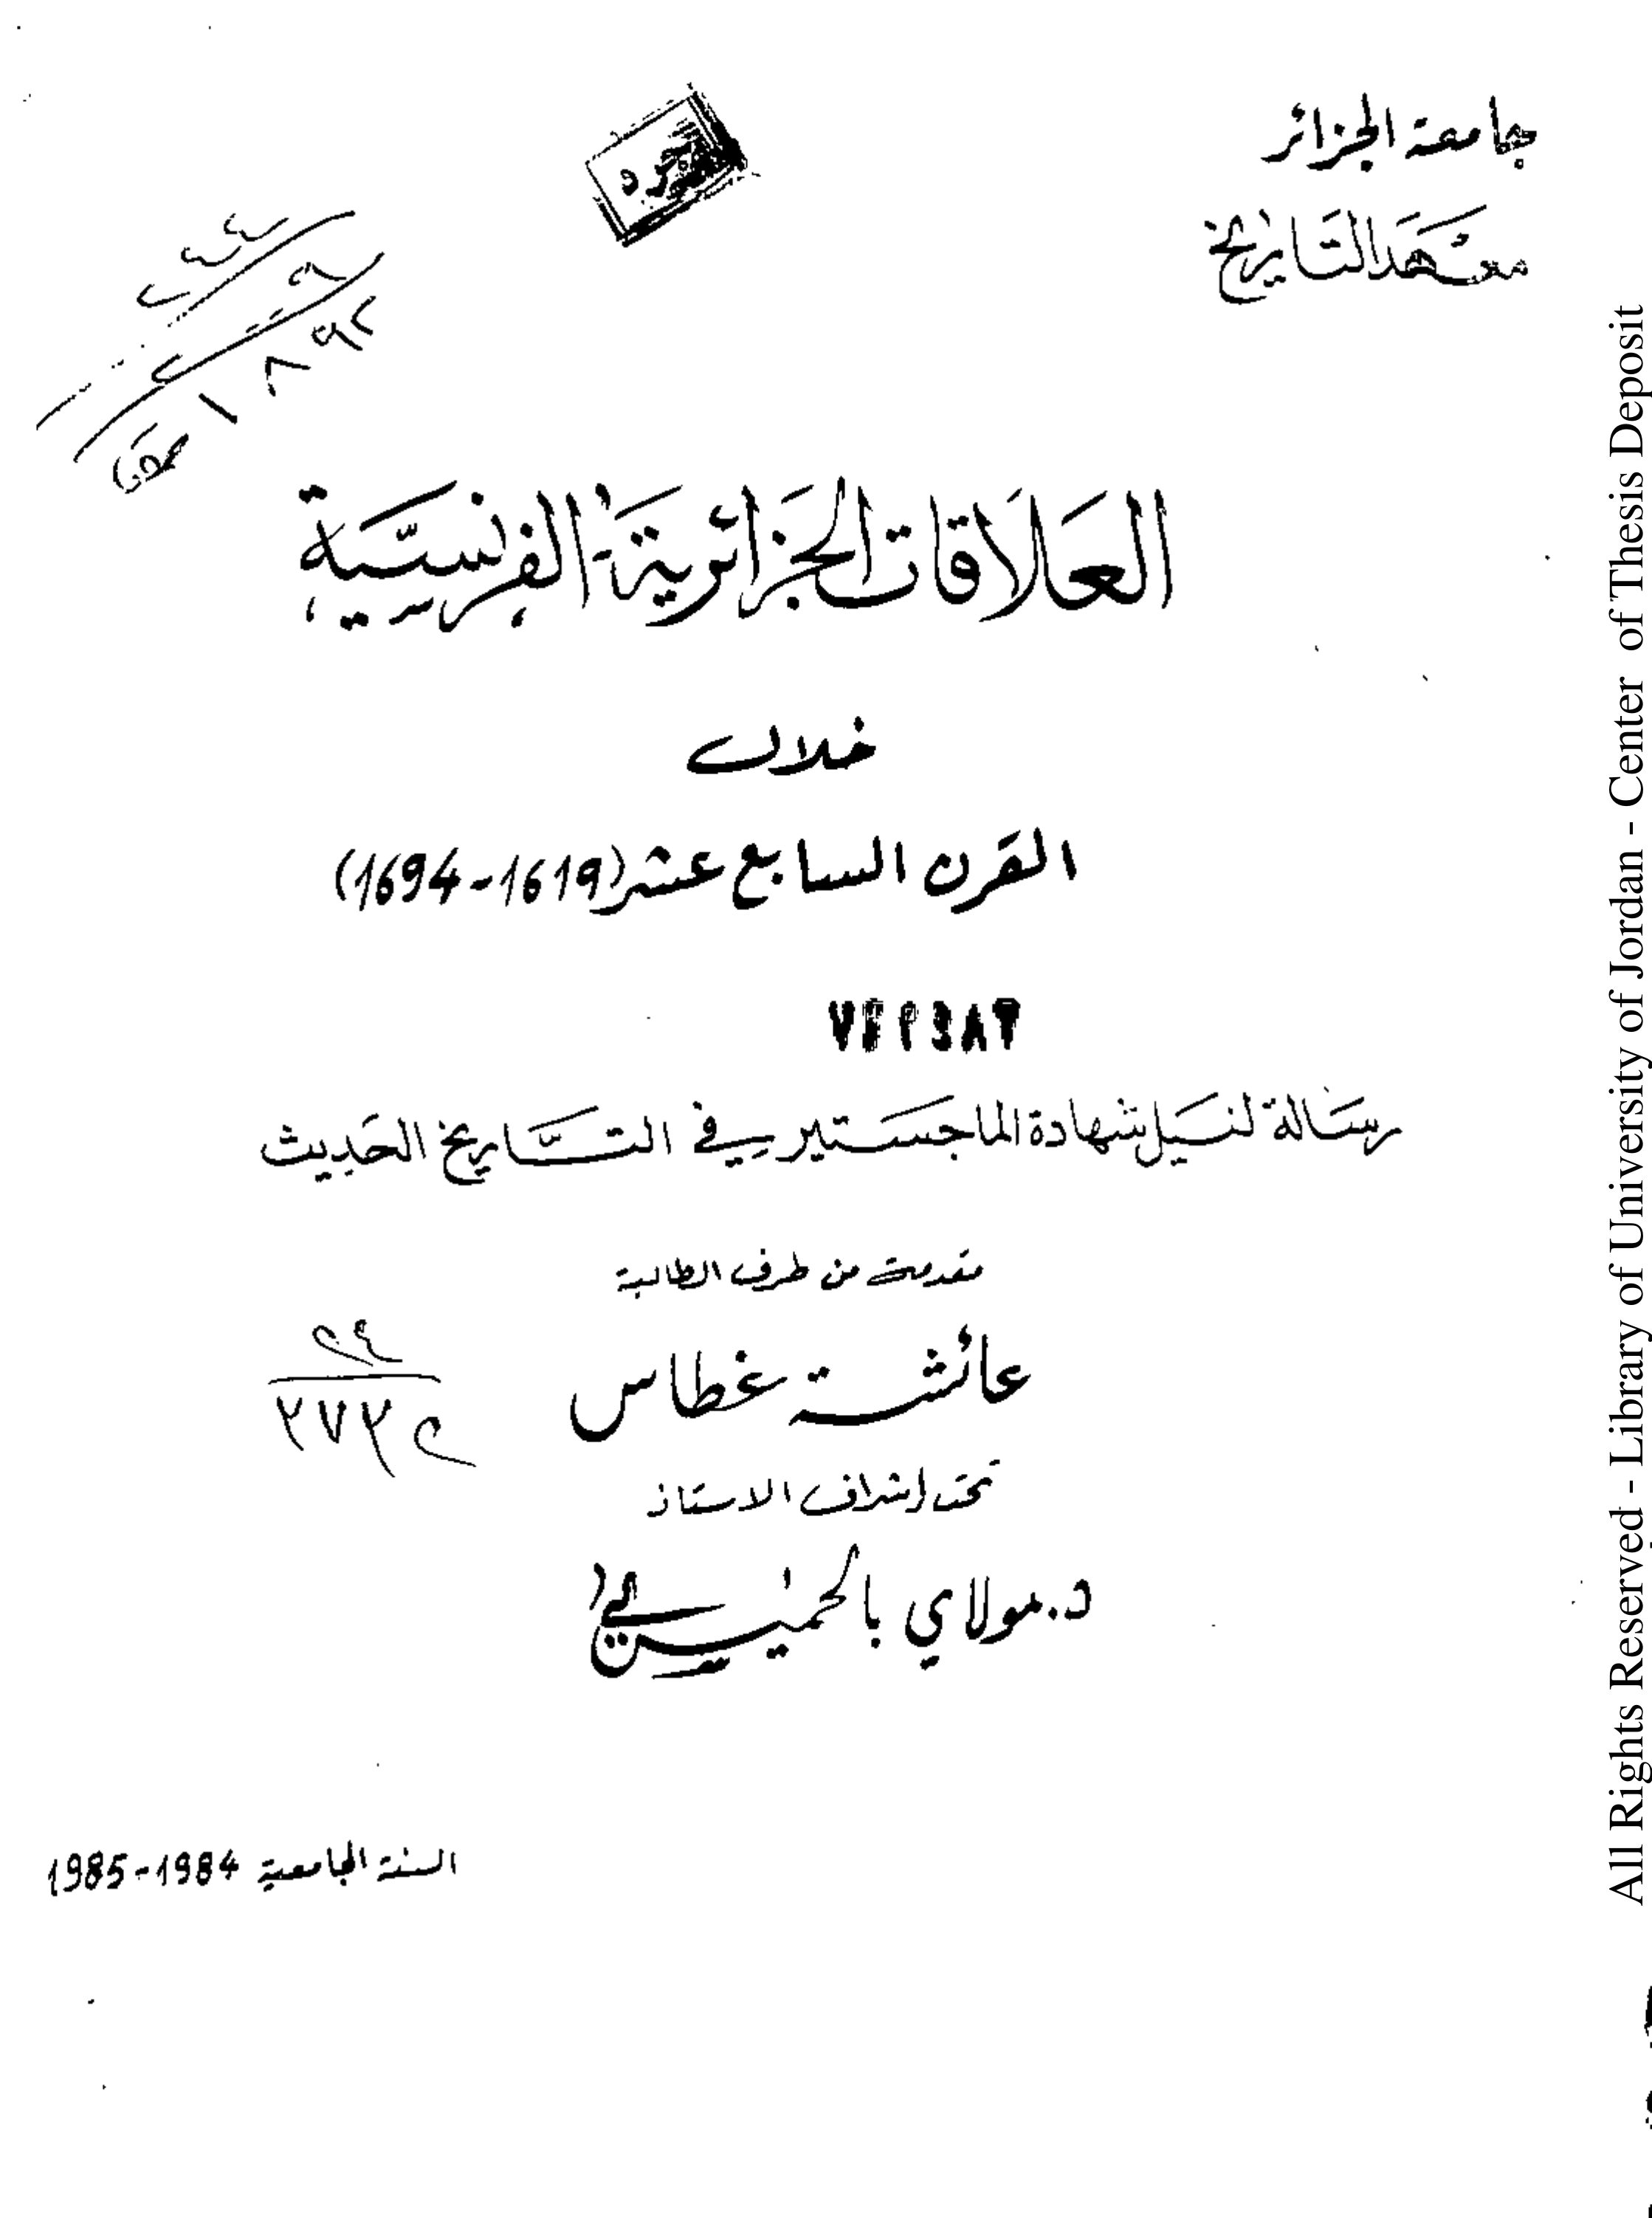 جامعة الجزائر
معهد التاريخ
العلاقات الجزائرية الفرنسية
خلال
القرن السابع عشر (1619-1694)
رسالة لنيل شهادة الماجستير في التاريخ الحديث
مقدمة من طرف الطالبة
عائشة غطاس
تحت إشراف الاستاذ
د. مولاي بالحميسي
السنة الجامعية 1984-1985
All Rights Reserved - Library of University of Jordan - Center of Thesis Deposit